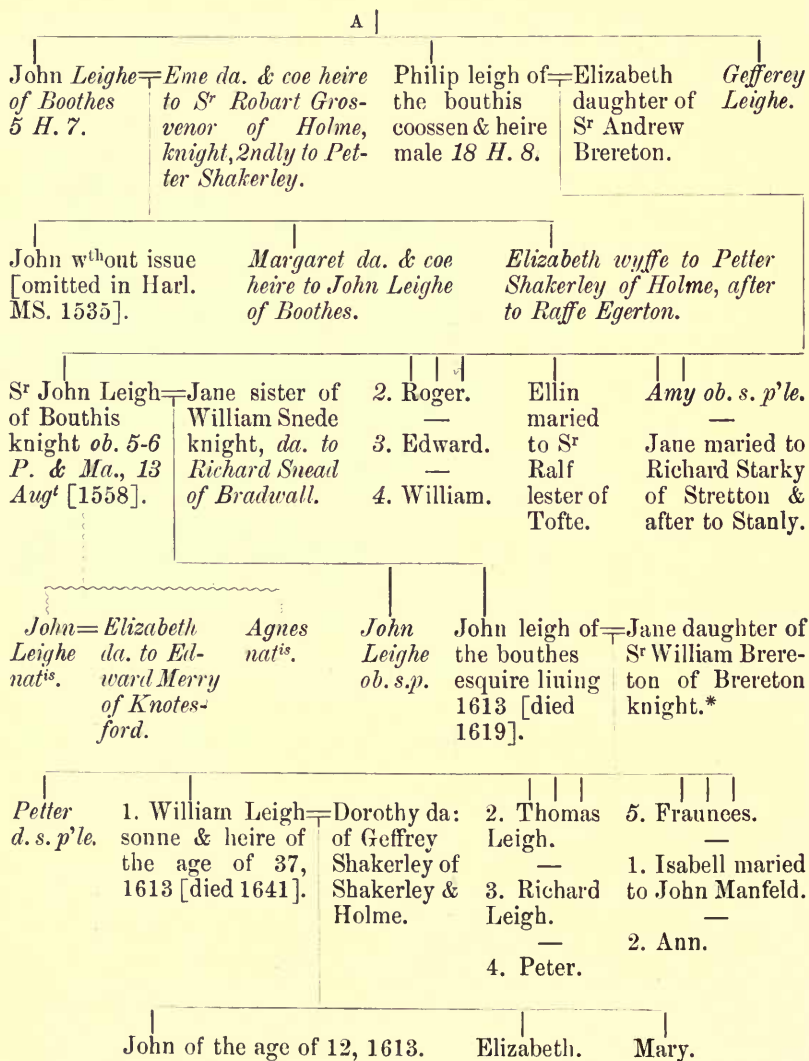 A
John Leighe
of Boothes
5 H. 7.
Eme da. & coe heire
to Sr Robart Gros-
venor of Holme,
knight, 2ndly to Pet-
ter Shakerley.
Philip leigh of
the bouthis
coossen & heire
male 18 H. 8.
Elizabeth
daughter of
Sr Andrew
Brereton.
Gefferey
Leighe.
John wthout issue
[omitted in Harl.
MS. 1535].
Margaret da. & coe
heire to John Leighe
of Boothes.
Elizabeth wyffe to Petter
Shakerley of Holme, after
to Raffe Egerton.
Sr John Leigh
of Bouthis
knight ob. 5-6
P. & Ma., 13
Augt [1558].
Jane sister of
William Snede
knight, da. to
Richard Snead
of Bradwall.
2. Roger.
—
3. Edward.
—
4. William.
Ellin
maried
to Sr
Ralf
lester of
Tofte.
Amy ob. s. p'le.
—
Jane maried to
Richard Starky
of Stretton &
after to Stanly.
John
Leighe
natis.
Elizabeth
da. to Ed-
ward Merry
of Knotes-
ford.
Agnes
natis.
John
Leighe
ob. s.p.
John leigh of
the bouthes
esquire liuing
1613 [died
1619].
Jane daughter of
Sr William Brere-
ton of Brereton
knight.*
Petter
d. s. p'le.
1. William Leigh
sonne & heire of
the age of 37,
1613 [died 1641].
Dorothy da:
of Geffrey
Shakerley of
Shakerley &
Holme.
2. Thomas
Leigh.
—
3. Richard
Leigh.
—
4. Peter.
5. Fraunces.
—
1. Isabell maried
to John Manfeld.
—
2. Ann.
John of the age of 12, 1613.
Elizabeth.
Mary.